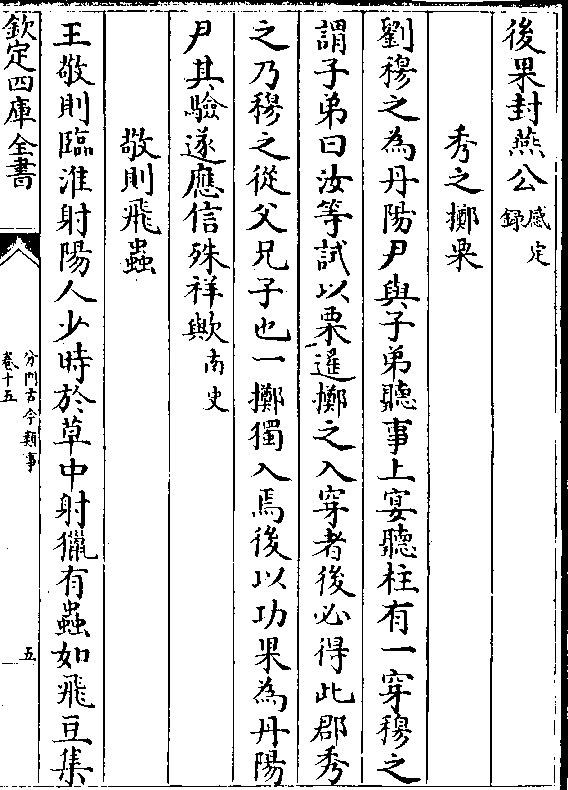 後果封燕公感定録
秀之擲栗
劉穆之為丹陽尹與子弟聽事上宴聽柱有一穿穆之
謂子弟曰汝等試以栗遥擲之入穿者後必得此郡秀
之乃穆之從父兄子也一擲獨入焉後以功果為丹陽
尹其驗遂應信殊祥歟南史
敬則飛蟲
王敬則臨淮射陽人少時於草中射獵有蟲如飛豆集
欽定四庫全書
分門古今類事
卷十五
五